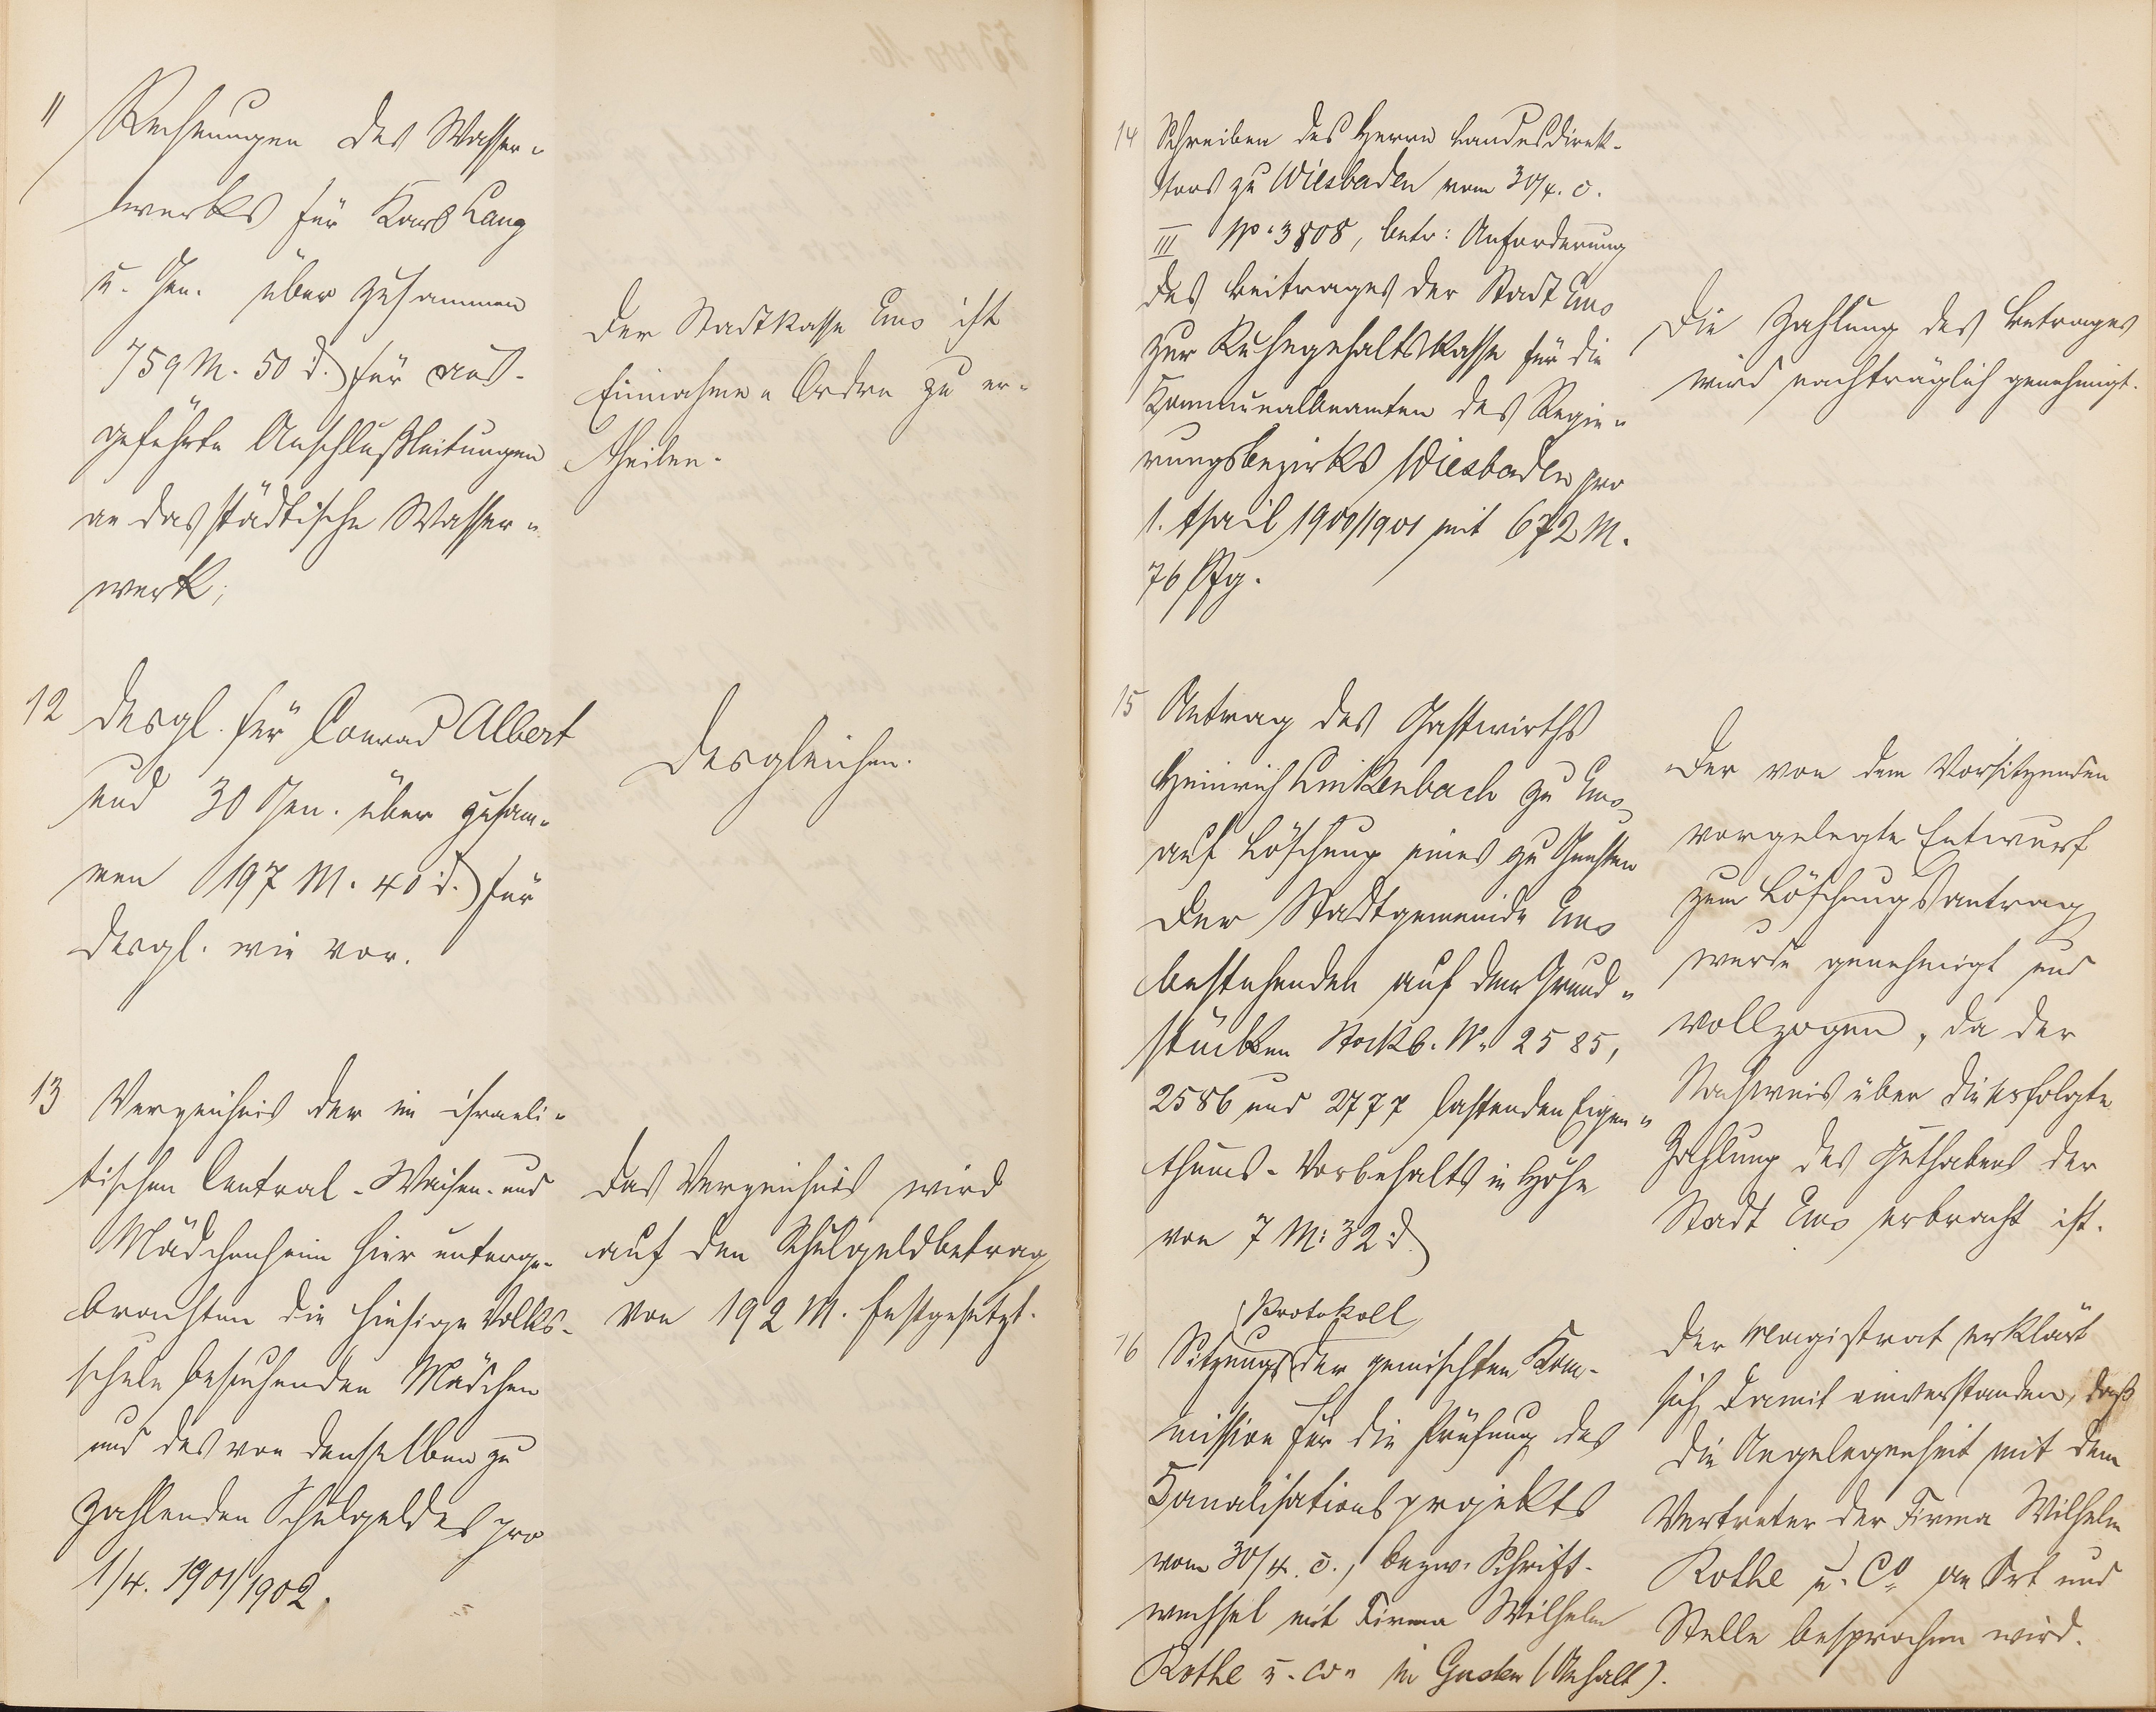 11 Rechnungen des Wasser-
werks für Karl Lang
u. Gen. über zusammen
759 M. 50 d. für aus-
geführte Anschlußleitungen
an das städtische Wasser-
werk;
Der Stadtkasse Ems ist
Einnahme-Ordre zu er-
theilen.
12 desgl. für Conrad Albert
und 30 Gen. über zusam-
men 197 M. 40 d. für
desgl. wie vor.
Desgleichen.
13 Verzeichnis der im israeli-
tischen Central-Waisen- und
Mädchenheim hier unterge-
brachten die hiesige Volks-
schule besuchenden Mädchen
und des von denselben zu
zahlenden Schulgeldes pro
1/4. 1901/1902.
Das Verzeichnis wird
auf den Schulgeldbetrag
von 192 M. festgesetzt.
14 Schreiben des Herrn Landesdirek-
tors zu Wiesbaden vom 30/4. c.
III No 3808, betr: Anforderung
des Beitrages der Stadt Ems
zur Ruhegehaltskasse für die
Kommunalbeamten des Regie-
rungsbezirks Wiesbaden pro
1. April 1900/1901 mit 672 M.
76 Pfg.
Die Zahlung des Betrages
wird nachträglich genehmigt.
15 Antrag des Gastwirths
Heinrich Linkenbach zu Ems
auf Löschung eines zu Gunsten
der Stadtgemeinde Ems
bestehenden auf den Grund-
stücken Stockb. No 2585,
2586 und 2777 lastenden Eigen-
thums-Vorbehalts in Höhe
von 7 M: 32 d
Der von dem Vorsitzenden
vorgelegte Entwurf
zum Löschungsantrag
wurde genehmigt und
vollzogen, da der
Nachweis über die erfolgte
Zahlung des Guthabens der
Stadt Ems erbracht ist.
16 Sitzungsprotokoll der gemischten Kom-
mission für die Prüfung des
Kanalisationsprojekts
vom 30/4. c., bezw. Schrift-
wechsel mit Firma Wilhelm
Rothe u. Co in Güsten (Anhalt).
Der Magistrat erklärt
sich damit einverstanden, daß
die Angelegenheit mit dem
Vertreter der Firma Wilhelm
Rothe u. Co an Ort und
Stelle besprochen wird.